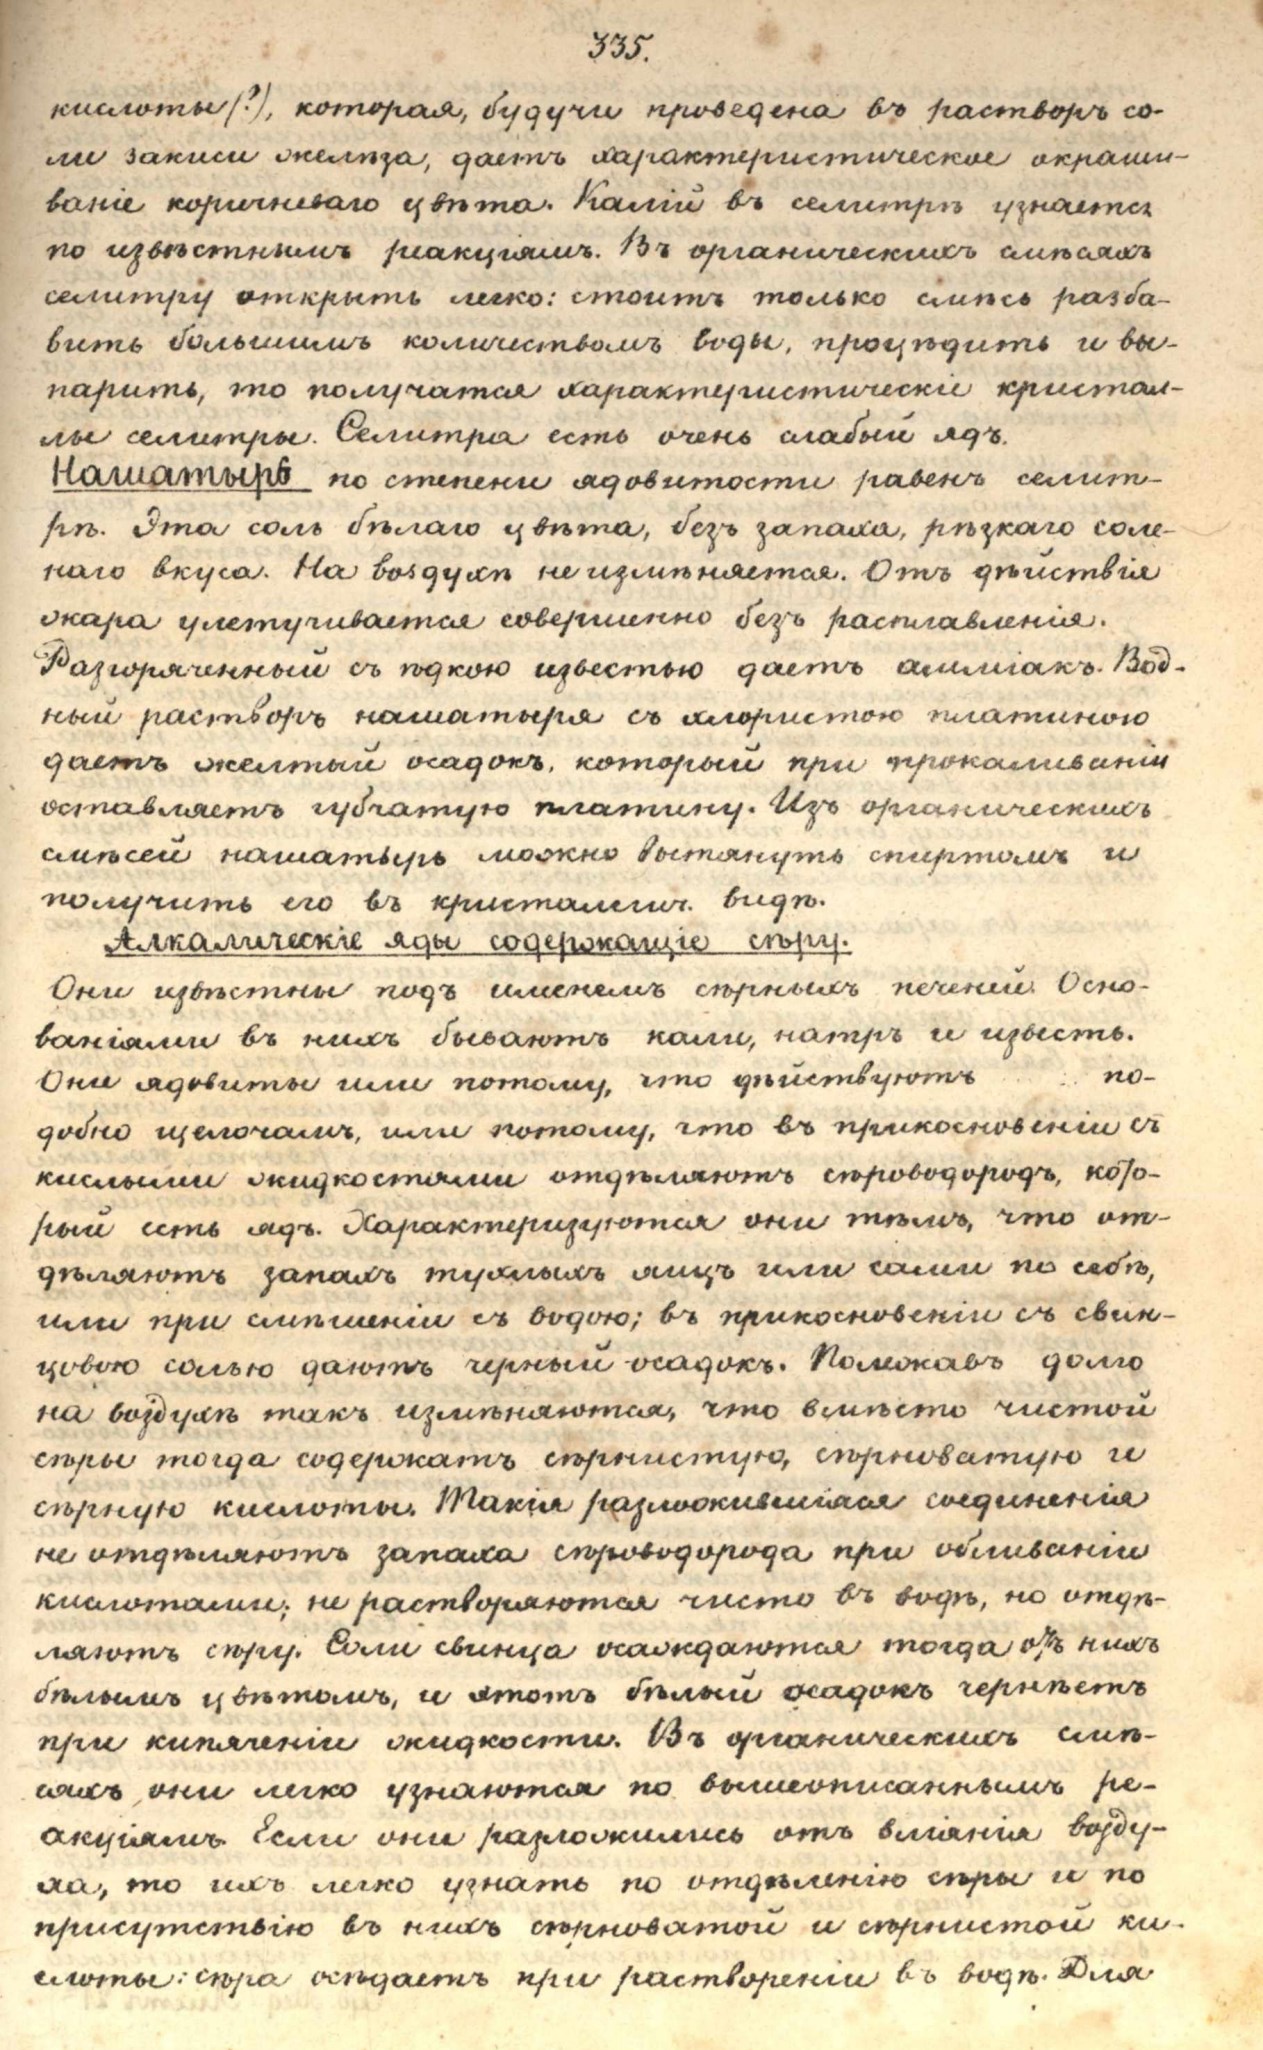 335.
кислоты (?), которая, будучи проведена въ растворъ со-
ли закиси желѣза, даетъ характеристическое окраши-
ваніе коричневаго цвѣта. Калій въ селитрѣ узнается
по извѣстнымъ реакціямъ. Въ органическихъ смѣсяхъ
селитру открыть легко: стоитъ только смѣсь разба-
вить большимъ количествомъ воды, процѣдить и вы-
парить, то получатся характеристическіе кристал-
лы селитры. Селитра есть очень слабый ядъ.
Нашатырь по степени ядовитости равенъ селит-
рѣ. Эта соль бѣлаго цвѣта, безъ запаха, рѣзкаго соле-
наго вкуса. На воздухѣ не измѣняется. Отъ дѣйствія
жара улетучивается совершенно безъ расплавленія.
Разгоряченный съ ѣдкою известью даетъ амміакъ. Вод-
ный растворъ нашатыря съ хлористою платиною
даетъ желтый осадокъ, который при прокаливаніи
оставляетъ губчатую платину. Изъ органическихъ
смѣсей нашатырь можно вытянуть спиртомъ и
получить его въ кристалич. видѣ.
Алкалическіе яды содержащіе сѣру.
Они извѣстны подъ именемъ сѣрныхъ печеній. Осно-
ваніями въ нихъ бываютъ кали, натръ и известь.
Они ядовиты или потому, что дѣйствуютъ по-
добно щелочамъ, или потому, что въ прикосновеніи съ
кислыми жидкостями отдѣляютъ сѣроводородъ, кото-
рый есть ядъ. Характеризуются они тѣмъ, что от-
дѣляютъ запахъ тухлыхъ яицъ или сами по себѣ,
или при смѣшеніи съ водою; въ прикосновеніи съ свин-
цовою солью даютъ черный осадокъ. Полежавъ долго
на воздухѣ такъ измѣняются, что вмѣсто чистой
сѣры тогда содержатъ сѣрнистую, сѣрноватую и
сѣрную кислоты. Такія разложившіяся соединенія
не отдѣляютъ запаха сѣроводорода при обливаніи
кислотами; не растворяются чисто въ водѣ, но отдѣ-
ляютъ сѣру. Соли свинца осаждаются тогда отъ нихъ
бѣлымъ цвѣтомъ, и этотъ бѣлый осадокъ чернѣетъ
при кипяченіи жидкости. Въ органическихъ смѣ-
сяхъ они легко узнаются по вышеописаннымъ ре-
акціямъ. Если они разложились отъ вліянія возду-
ха, то ихъ легко узнать по отдѣленію сѣры и по
присутствію въ нихъ сѣрноватой и сѣрнистой ки-
слоты: сѣра осѣдаетъ при раствореніи въ водѣ. Для